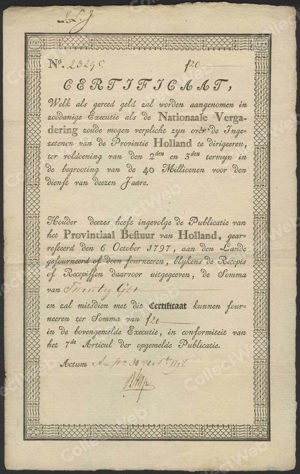 No. 2329
CERTIFICAAT,
Welk als gereed geld zal worden aangenomen in
zoodanige Executie als de Nationaale Verga-
dering zoude mogen verplicht zyn over de Inge-
zetenen van de Provintie Holland te dirigeeren,
ter voldoening van den 2den en 3den termyn in
de begrooting van de 40 Millioenen voor den
dienst van deezen Jaare.
Houder deezes heeft ingevolge de Publicatie van
het Provintiaal Bestuur van Holland, gear-
resteerd den 6 October 1797, aan den Lande
gefourneerd of doen fourneeren, blykens de Recepis
of Recepissen daarvoor uitgegeeven, de Somma
van
en zal mitsdien met dit Certificaat kunnen four-
neeren ter Somma van
in de bovengemelde Executie, in conformiteit van
het 7de Articul der opgemelde Publicatie.
Actum